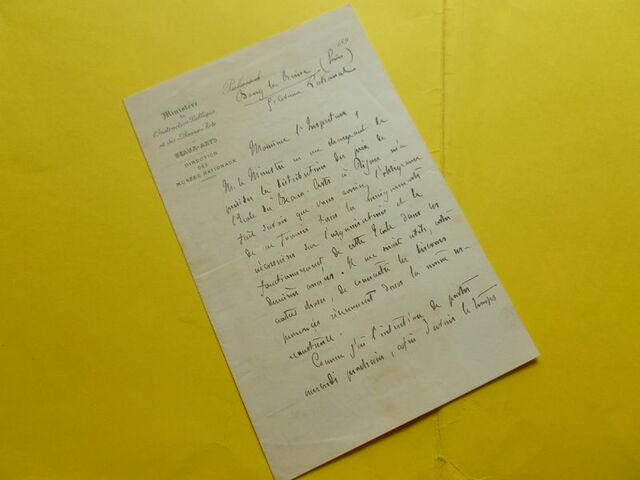 Ministère
de
l'Instruction Publique
et des Beaux-Arts
BEAUX-ARTS
DIRECTION
DES
MUSÉES NATIONAUX
189
Bourg la Reine (Seine)
Monsieur l'Inspecteur,
M. le Ministre en me chargeant de
présider la distribution des prix de
l'École des Beaux-Arts à Dijon m'a
fait savoir que vous auriez l'obligeance
de me fournir tous les renseignements
nécessaires sur l'organisation et le
fonctionnement de cette École dans ces
dernières années. Il me serait utile, entre
autres choses, de connaître les discours
prononcés récemment dans la même
circonstance.
Comme j'ai l'intention de partir
mardi prochain, afin d'avoir le temps